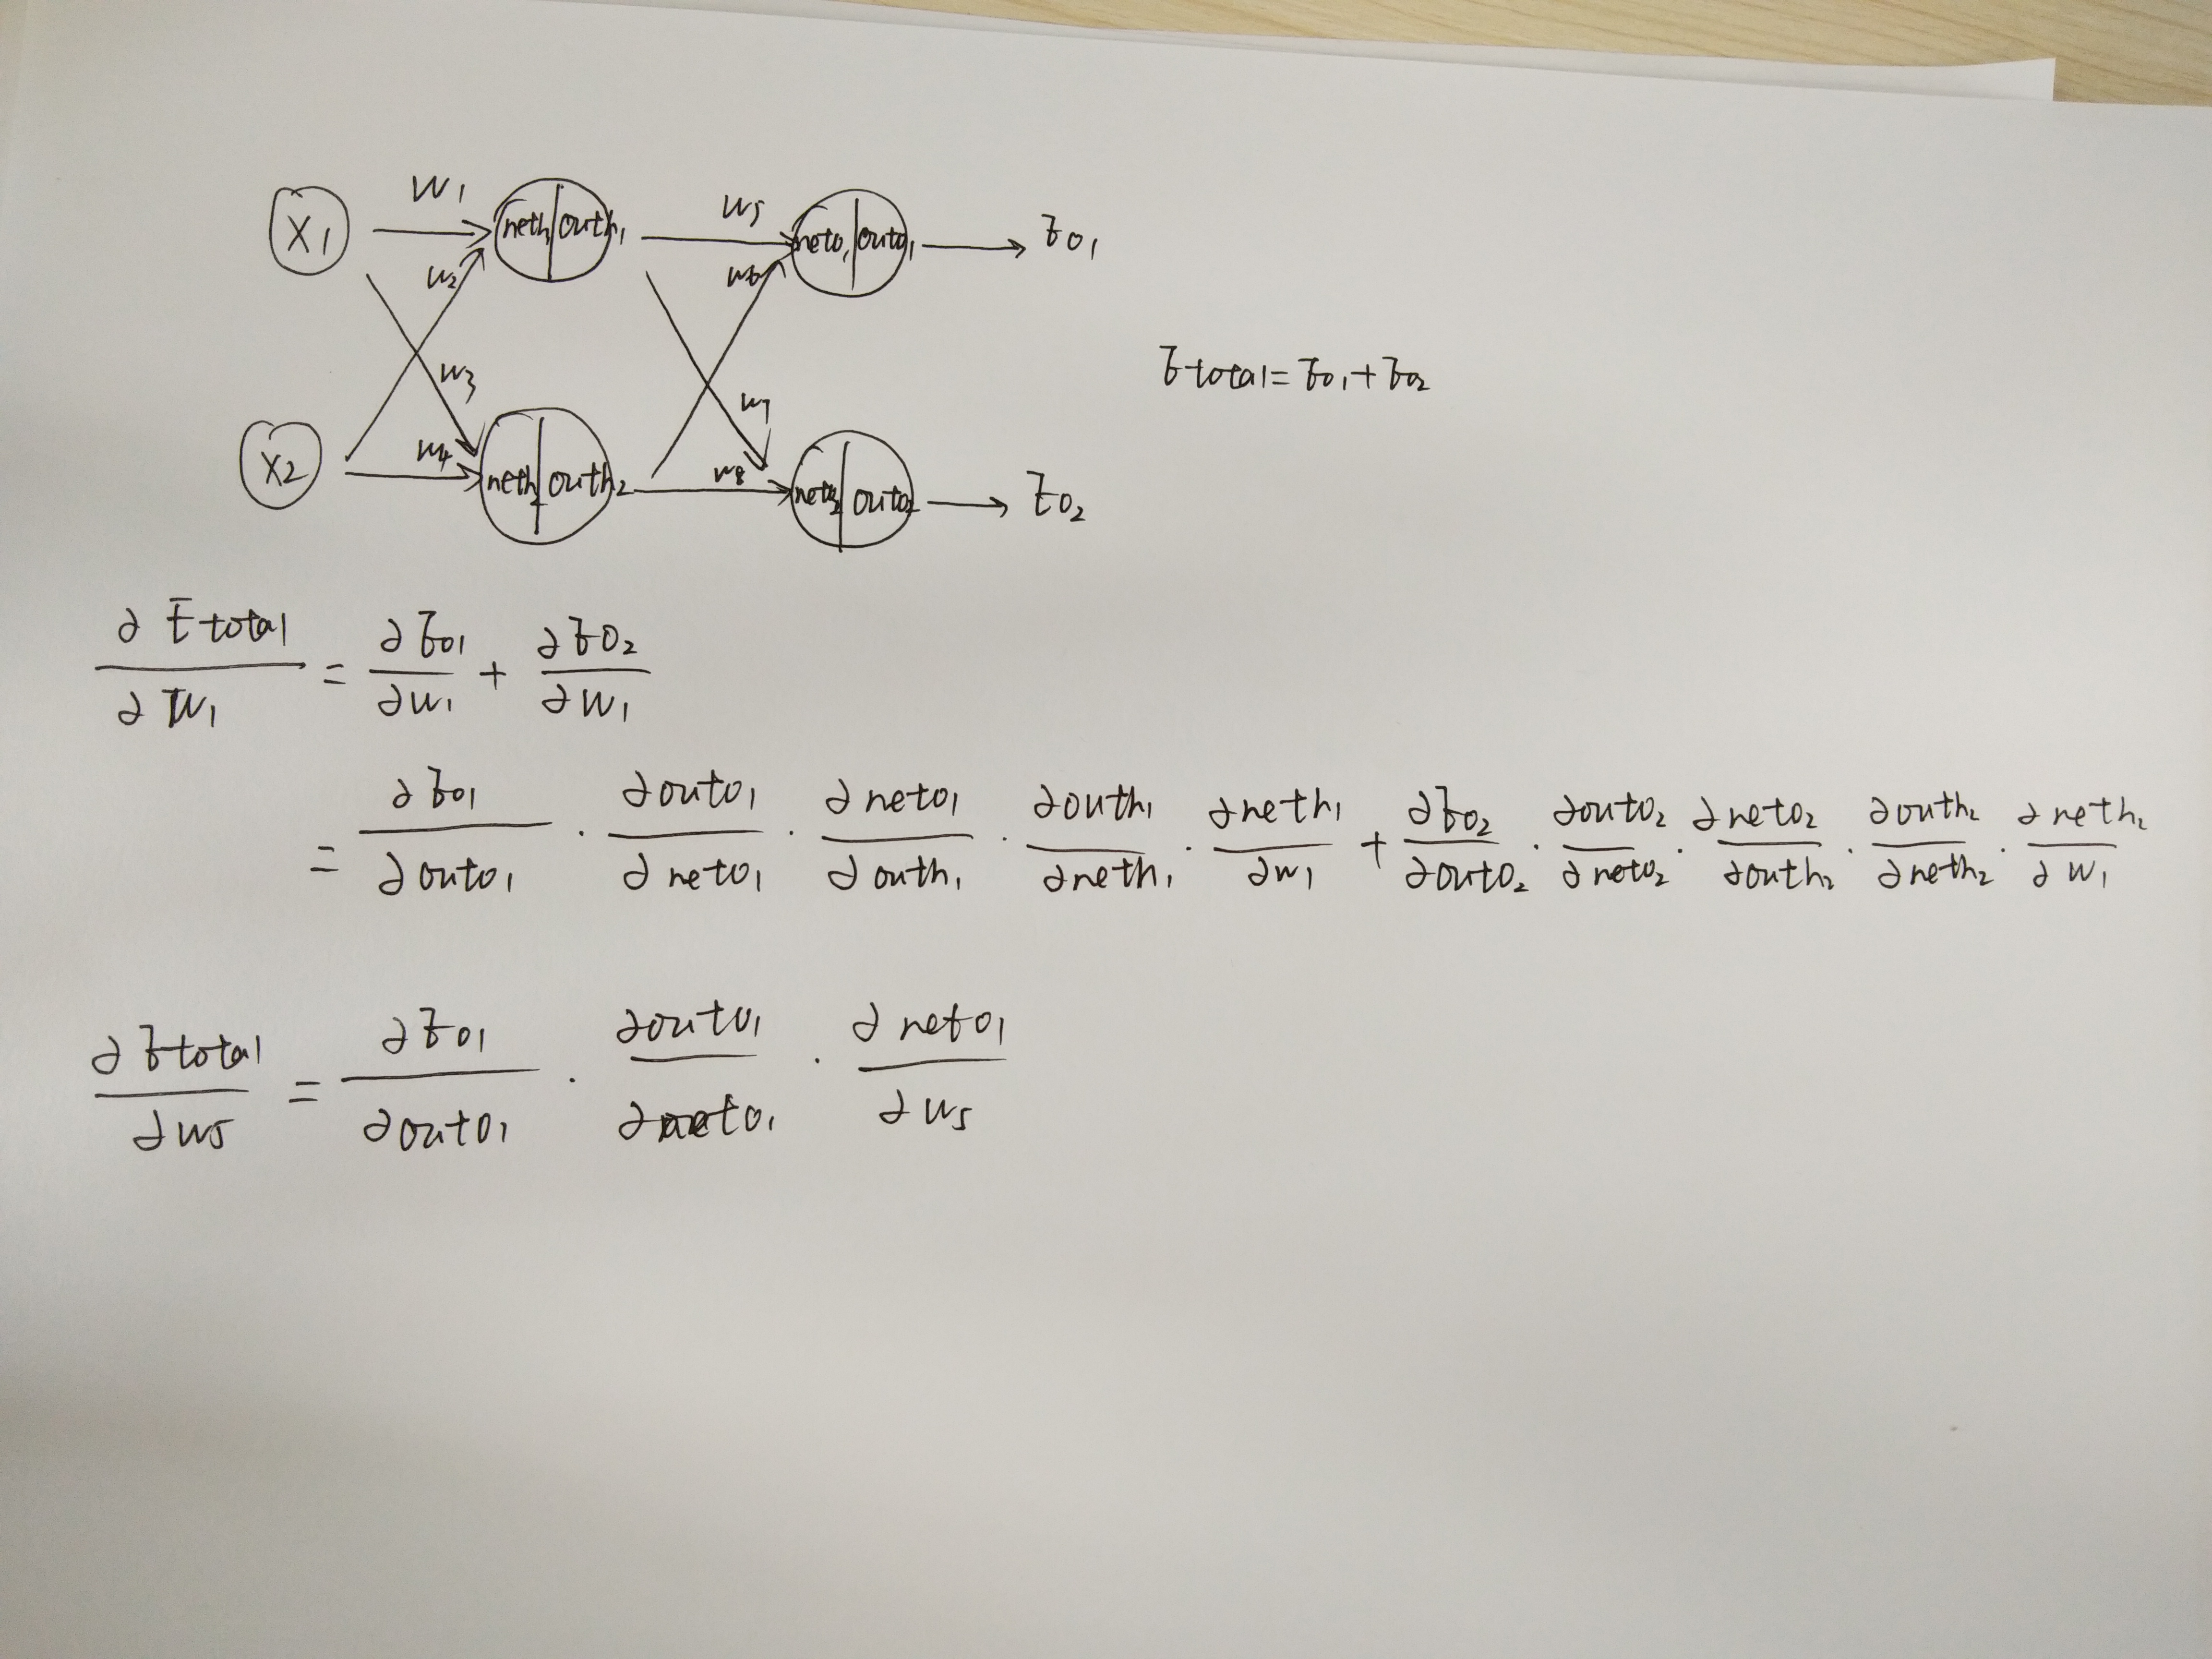 W1 W5
X1 neth1 outh1 neto1 outo1 Eo1
W2 W6
W3 W7
Etotal = Eo1 + Eo2
W4 W8
X2 neth2 outh2 neto2 outo2 Eo2
∂Etotal/∂W1 = ∂Eo1/∂W1 + ∂Eo2/∂W1
= ∂Eo1/∂outo1 · ∂outo1/∂neto1 · ∂neto1/∂outh1 · ∂outh1/∂neth1 · ∂neth1/∂w1 + ∂Eo2/∂outo2 · ∂outo2/∂neto2 · ∂neto2/∂outh2 · ∂outh2/∂neth2 · ∂neth2/∂W1
∂Etotal/∂w5 = ∂Eo1/∂outo1 · ∂outo1/∂neto1 · ∂neto1/∂w5